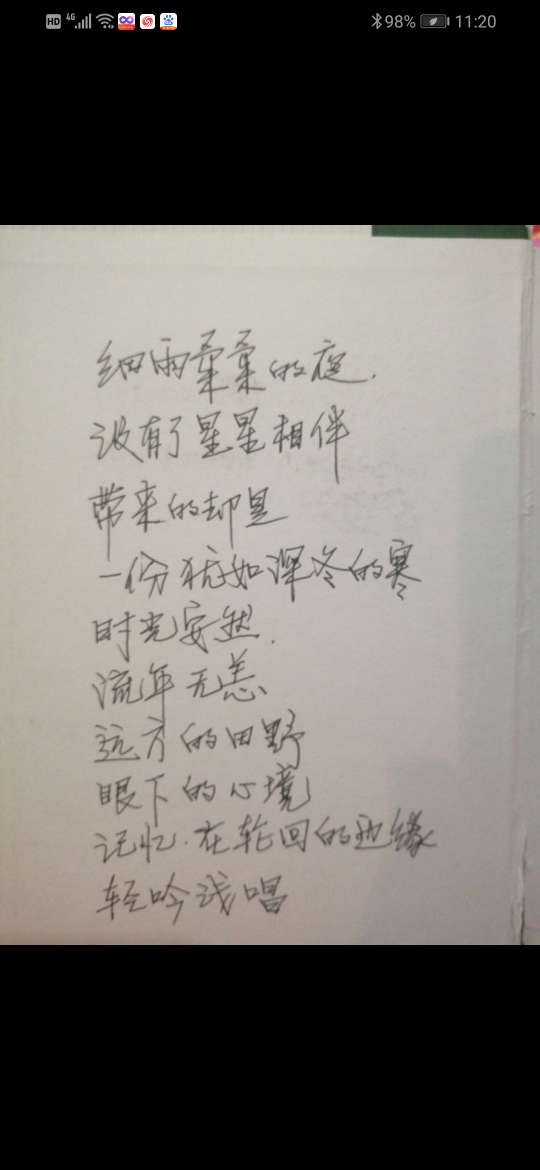 HD 4G 98% 11:20
细雨蒙蒙的夜.
没有了星星相伴
带来的却是
一份犹如深冬的寒
时光安然.
流年无恙、
远方的田野
眼下的心境
记忆.在轮回的边缘
轻吟浅唱